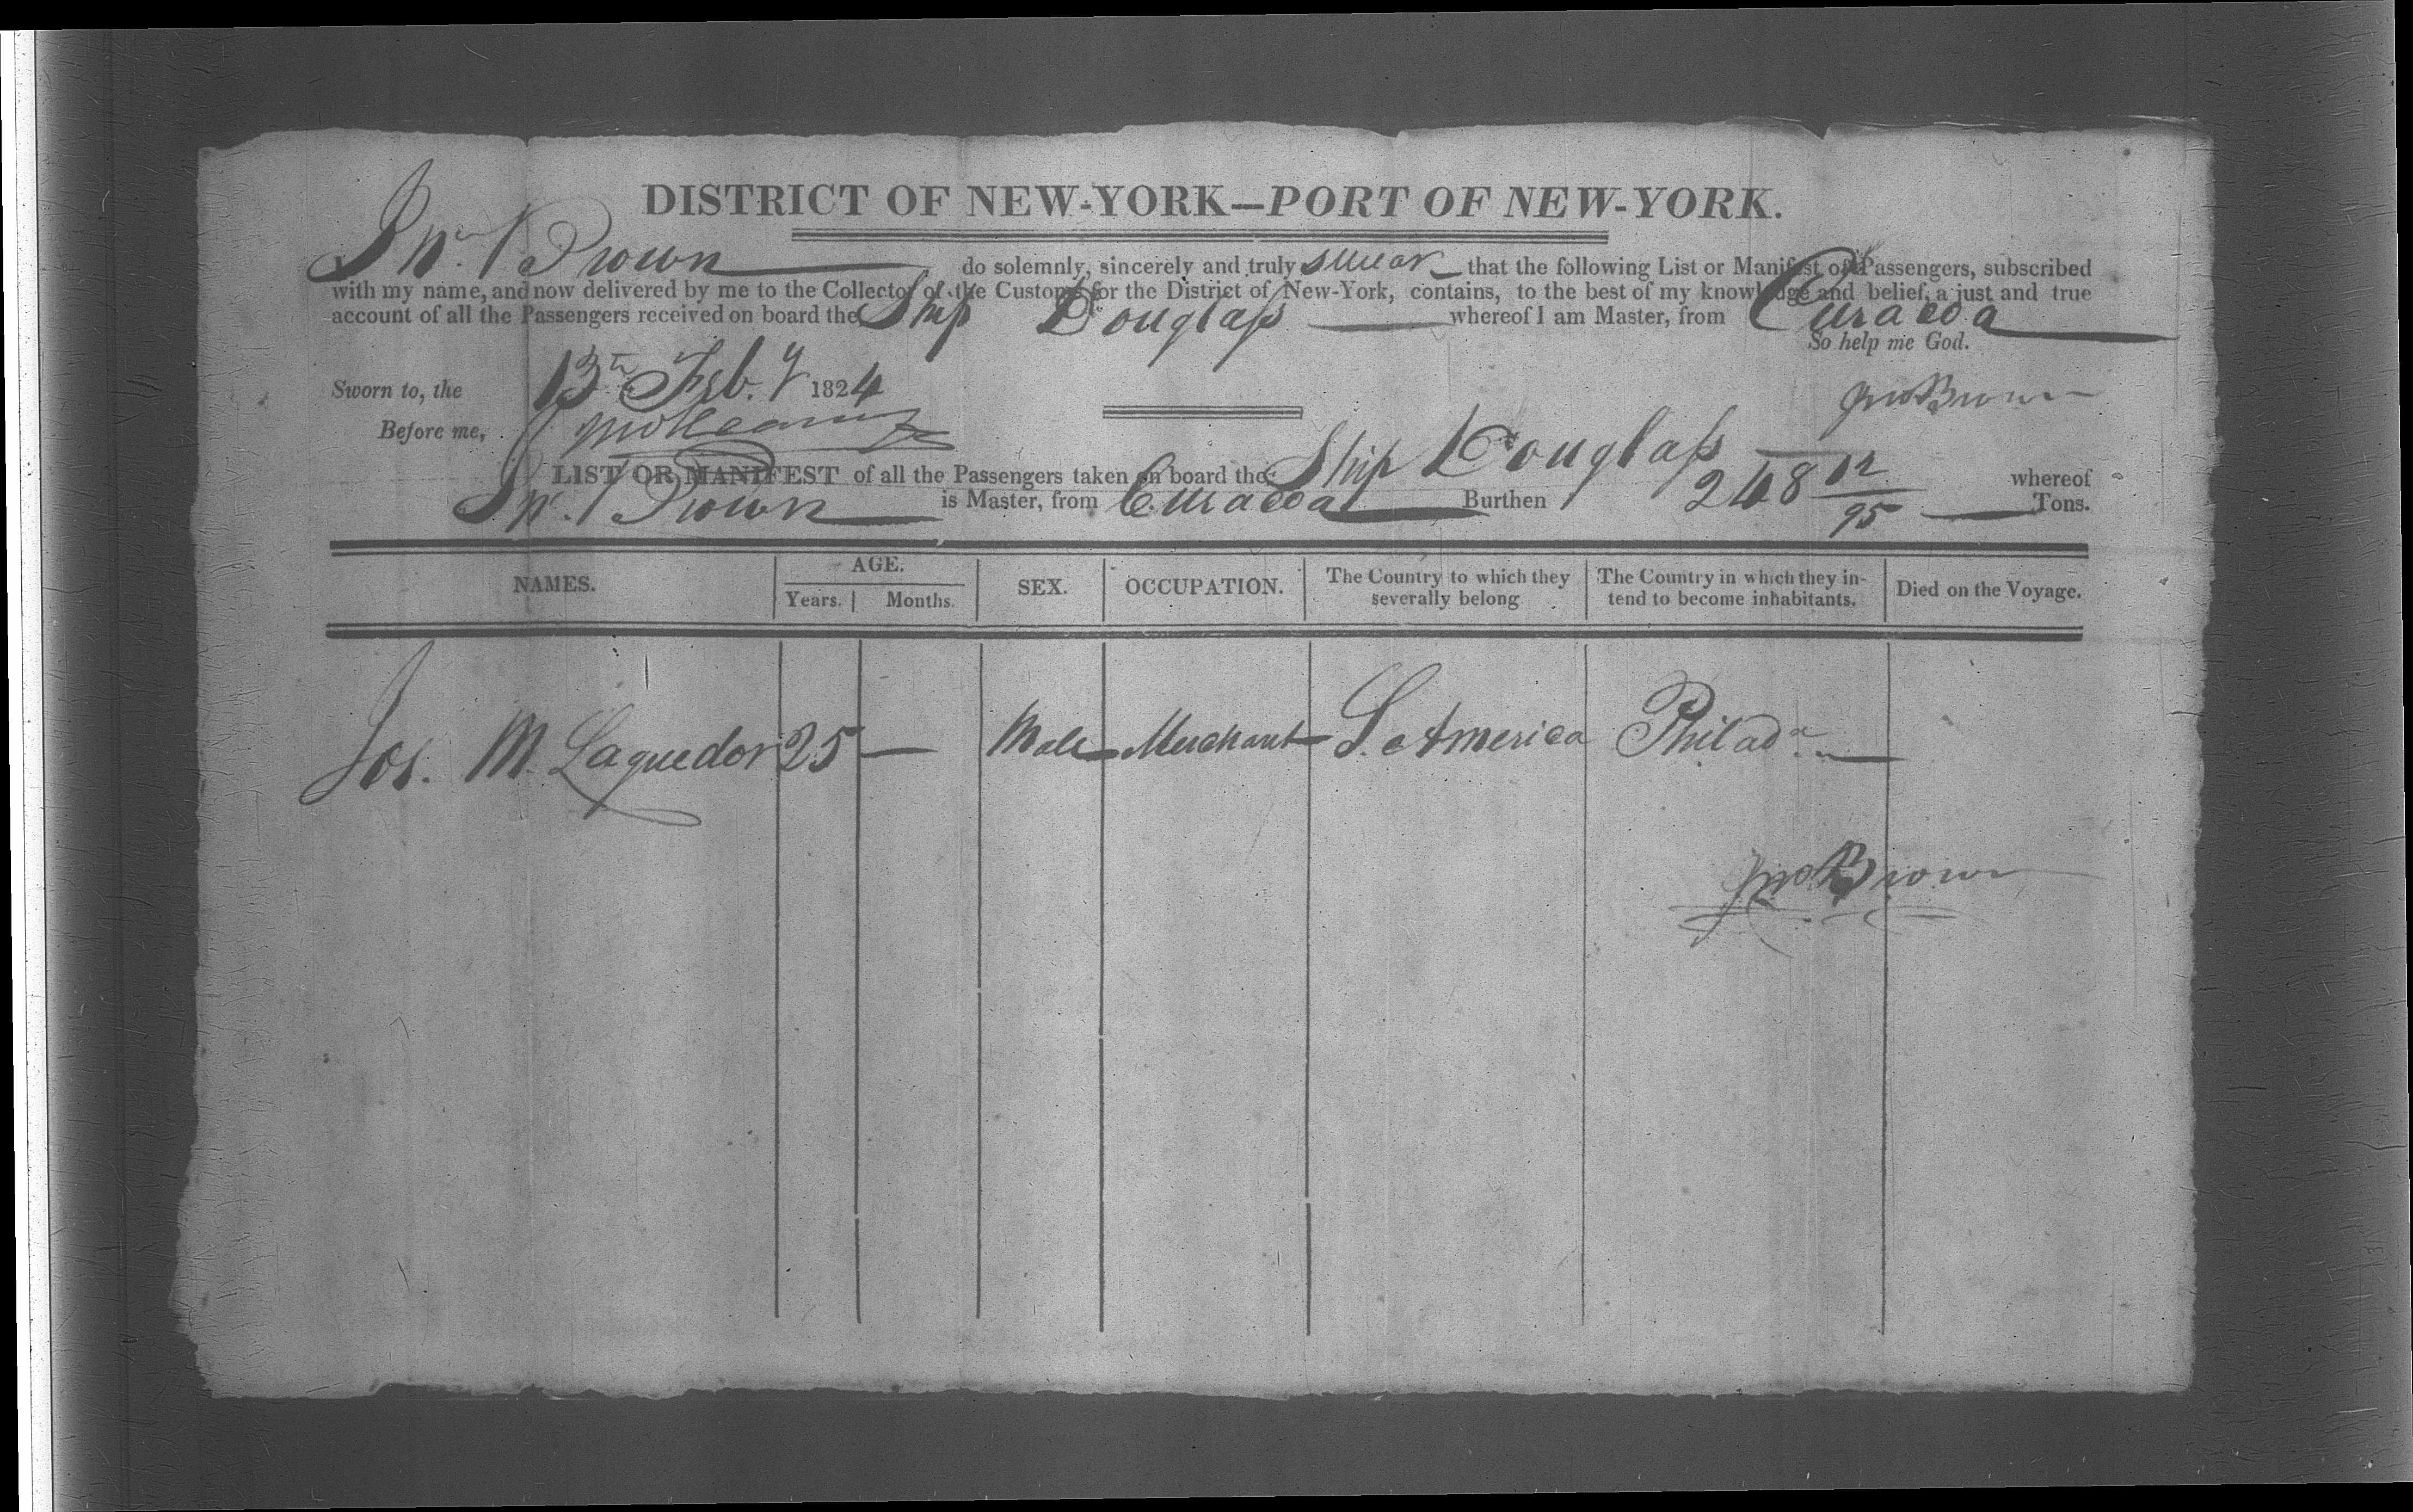 DISTRICT OF NEW-YORK—PORT OF NEW-YORK.
Jno. Brown do solemnly, sincerely and truly swear that the following List or Manifest of Passengers, subscribed
with my name, and now delivered by me to the Collector of the Customs for the District of New-York, contains, to the best of my knowledge and belief, a just and true
account of all the Passengers received on board the Ship Douglass whereof I am Master, from Curacoa
So help me God.
Sworn to, the 13th Feb.y 1824
Jno Brown
Before me,
LIST OR MANIFEST of all the Passengers taken on board the Ship Douglass whereof
Jno. Brown is Master, from Curacoa Burthen 248 12/95 Tons.
NAMES. AGE. SEX. OCCUPATION. The Country to which they severally belong The Country in which they intend to become inhabitants. Died on the Voyage.
Years. Months.
Jos. M. Laguedor 25 — Male Merchant S. America Philada.
Jno Brown